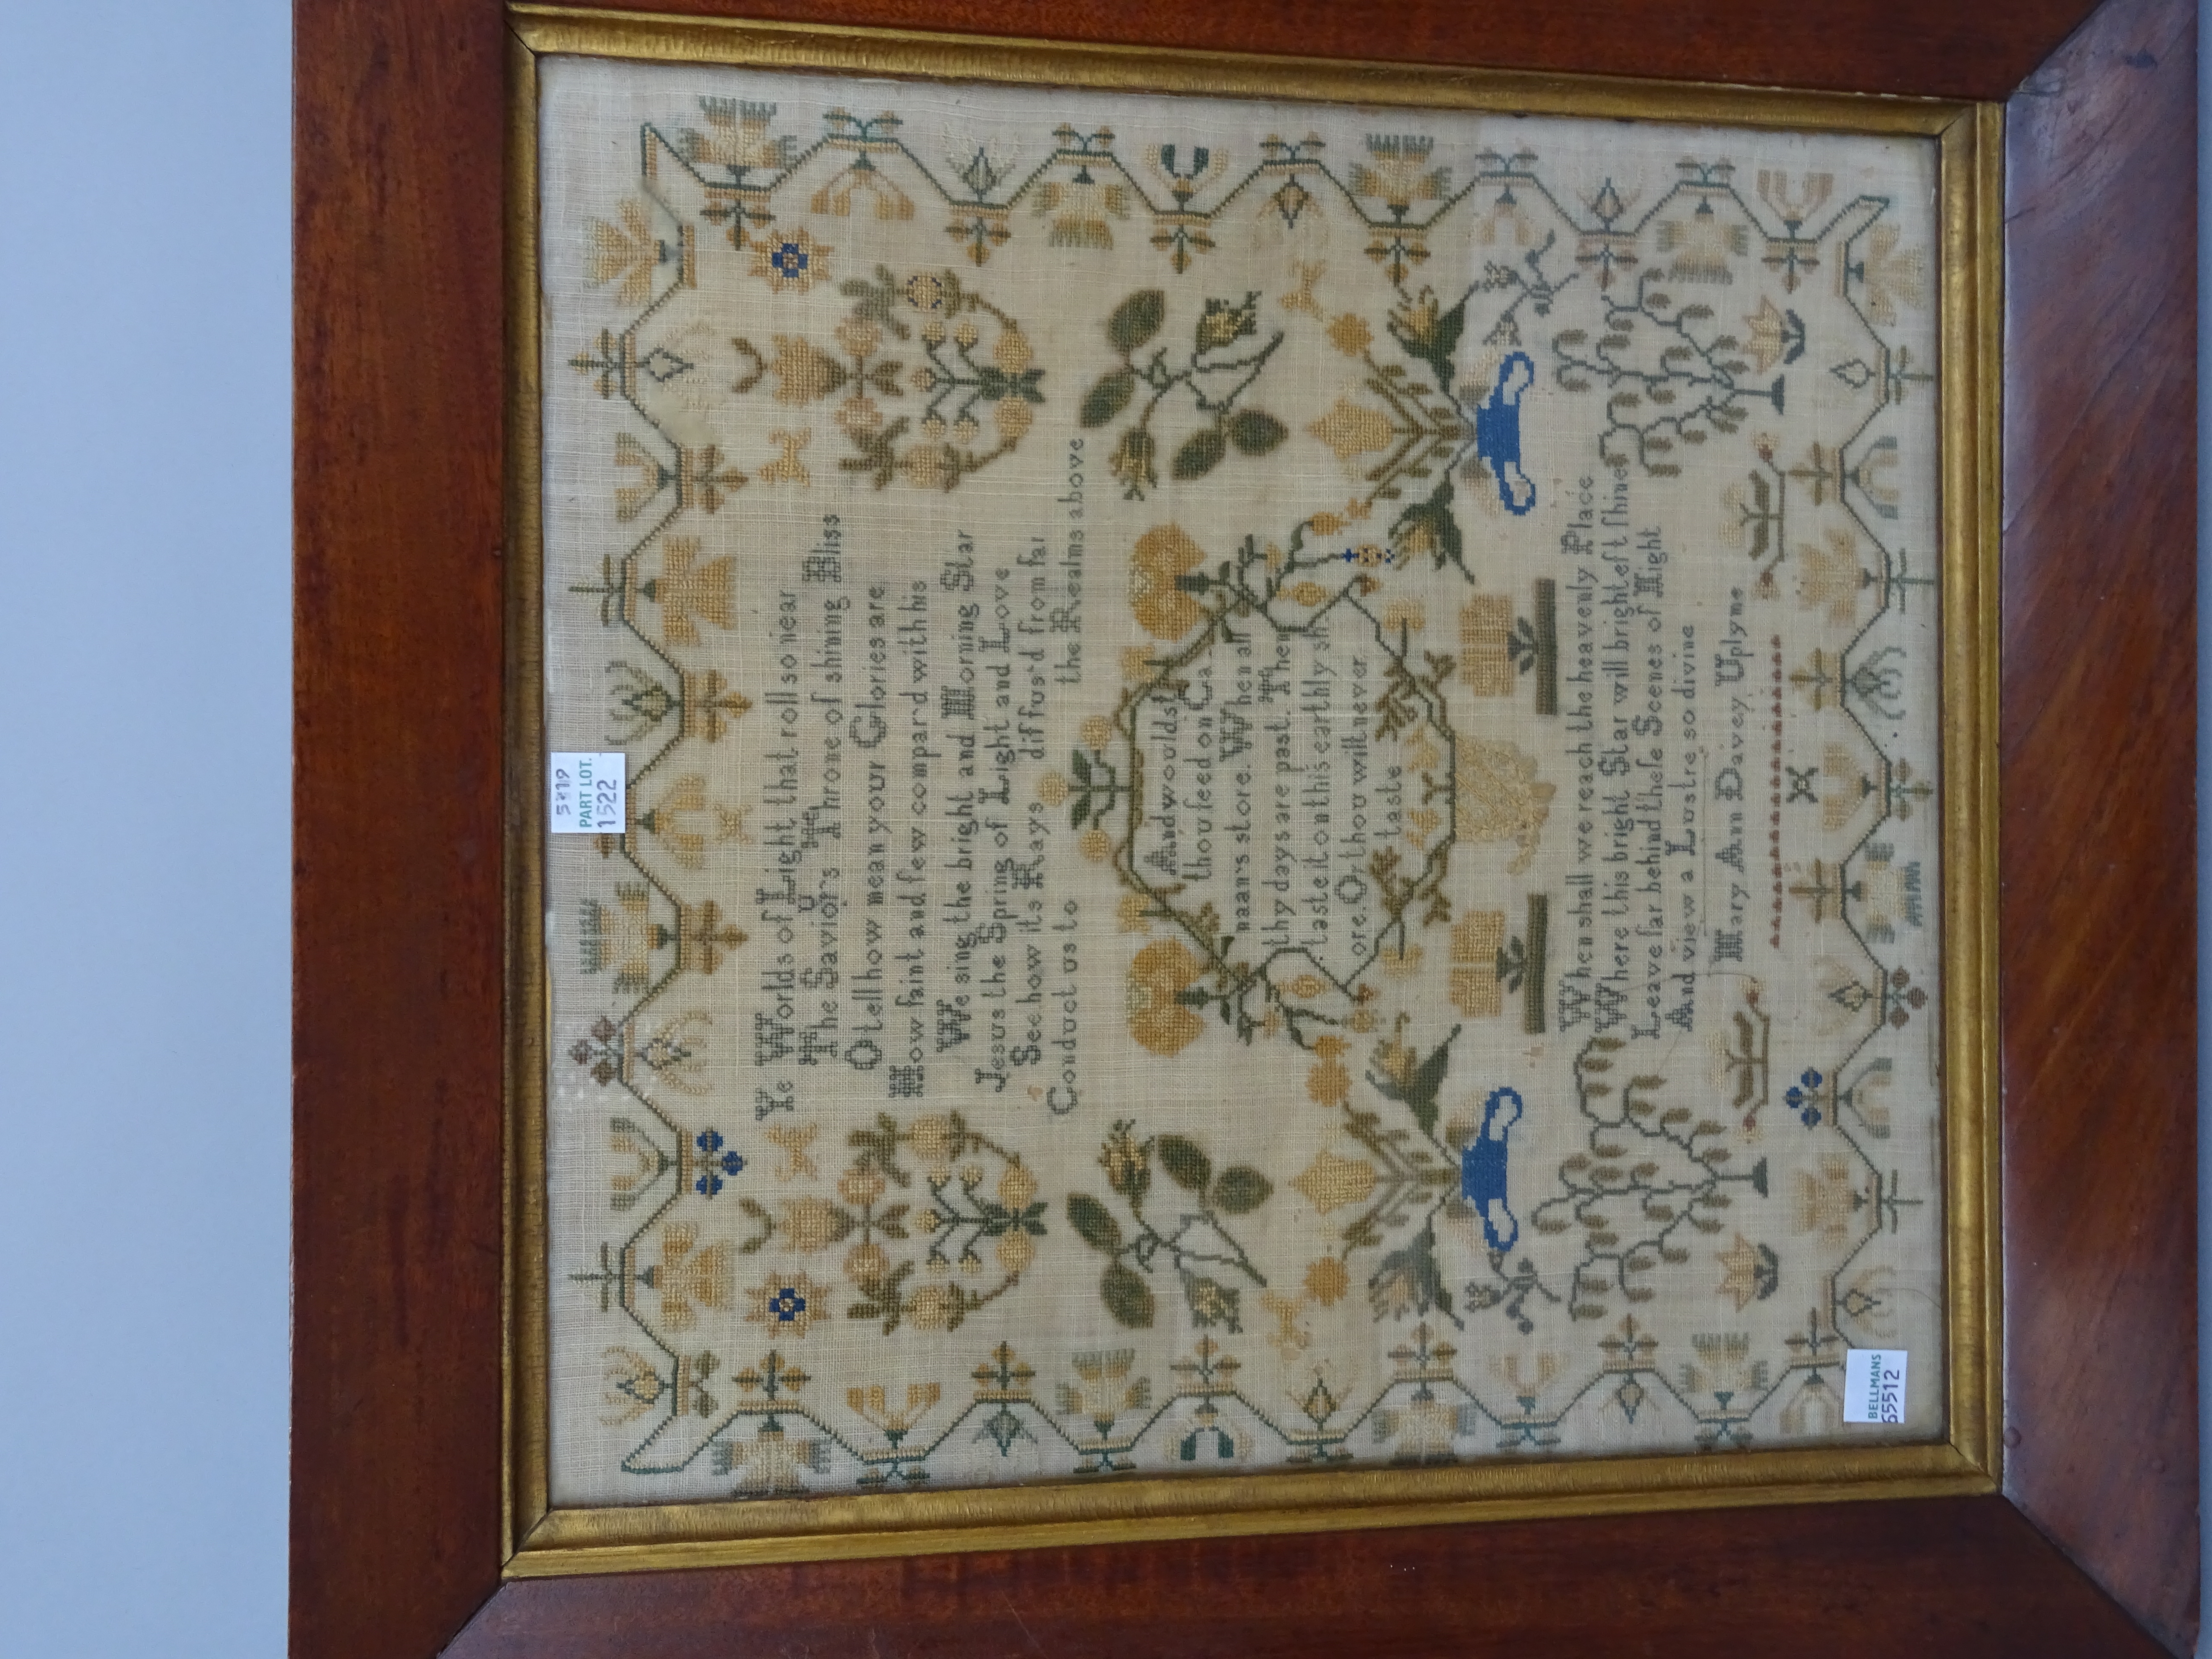 5319
PART LOT.
1522
Ye Worlds of Light that roll so near
The Saviors Throne of shining Bliss
O tell how mean your Glories are
How faint and few compard with his
We sing the bright and Morning Star
Jesus the Spring of Light and Love
See how its Rays diffus'd from far
Conduct us to the Realms above
And wouldst
thou feed on Ca
naan's store. When all
thy days are past. Then
taste it on this earthly sh
ore. Or thou wilt never
taste
When shall we reach the heavenly Place
Where this bright Star will brightest shine
Leave far behind theſe Scenes of Night
And view a Lustre so divine
Mary Ann Davey Uplyme
BELLMANS
65512